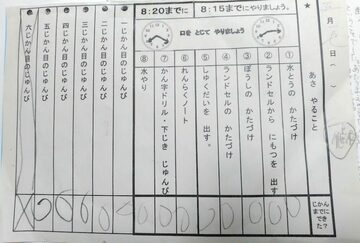 8:20までに 8:15までにやりましょう!
口を とじて やりましょう
★
あさ やること
じかん までに できた?
① 水とうの かたづけ
② ランドセルから にもつを 出す
③ ぼうしの かたづけ
④ ランドセルの かたづけ
⑤ しゅくだいを 出す。
⑥ れんらくノート
⑦ かん字ドリル・下じき じゅんび
⑧ 水やり
一じかん目のじゅんび
二じかん目のじゅんび
三じかん目のじゅんび
四じかん目のじゅんび
五じかん目のじゅんび
六じかん目のじゅんび